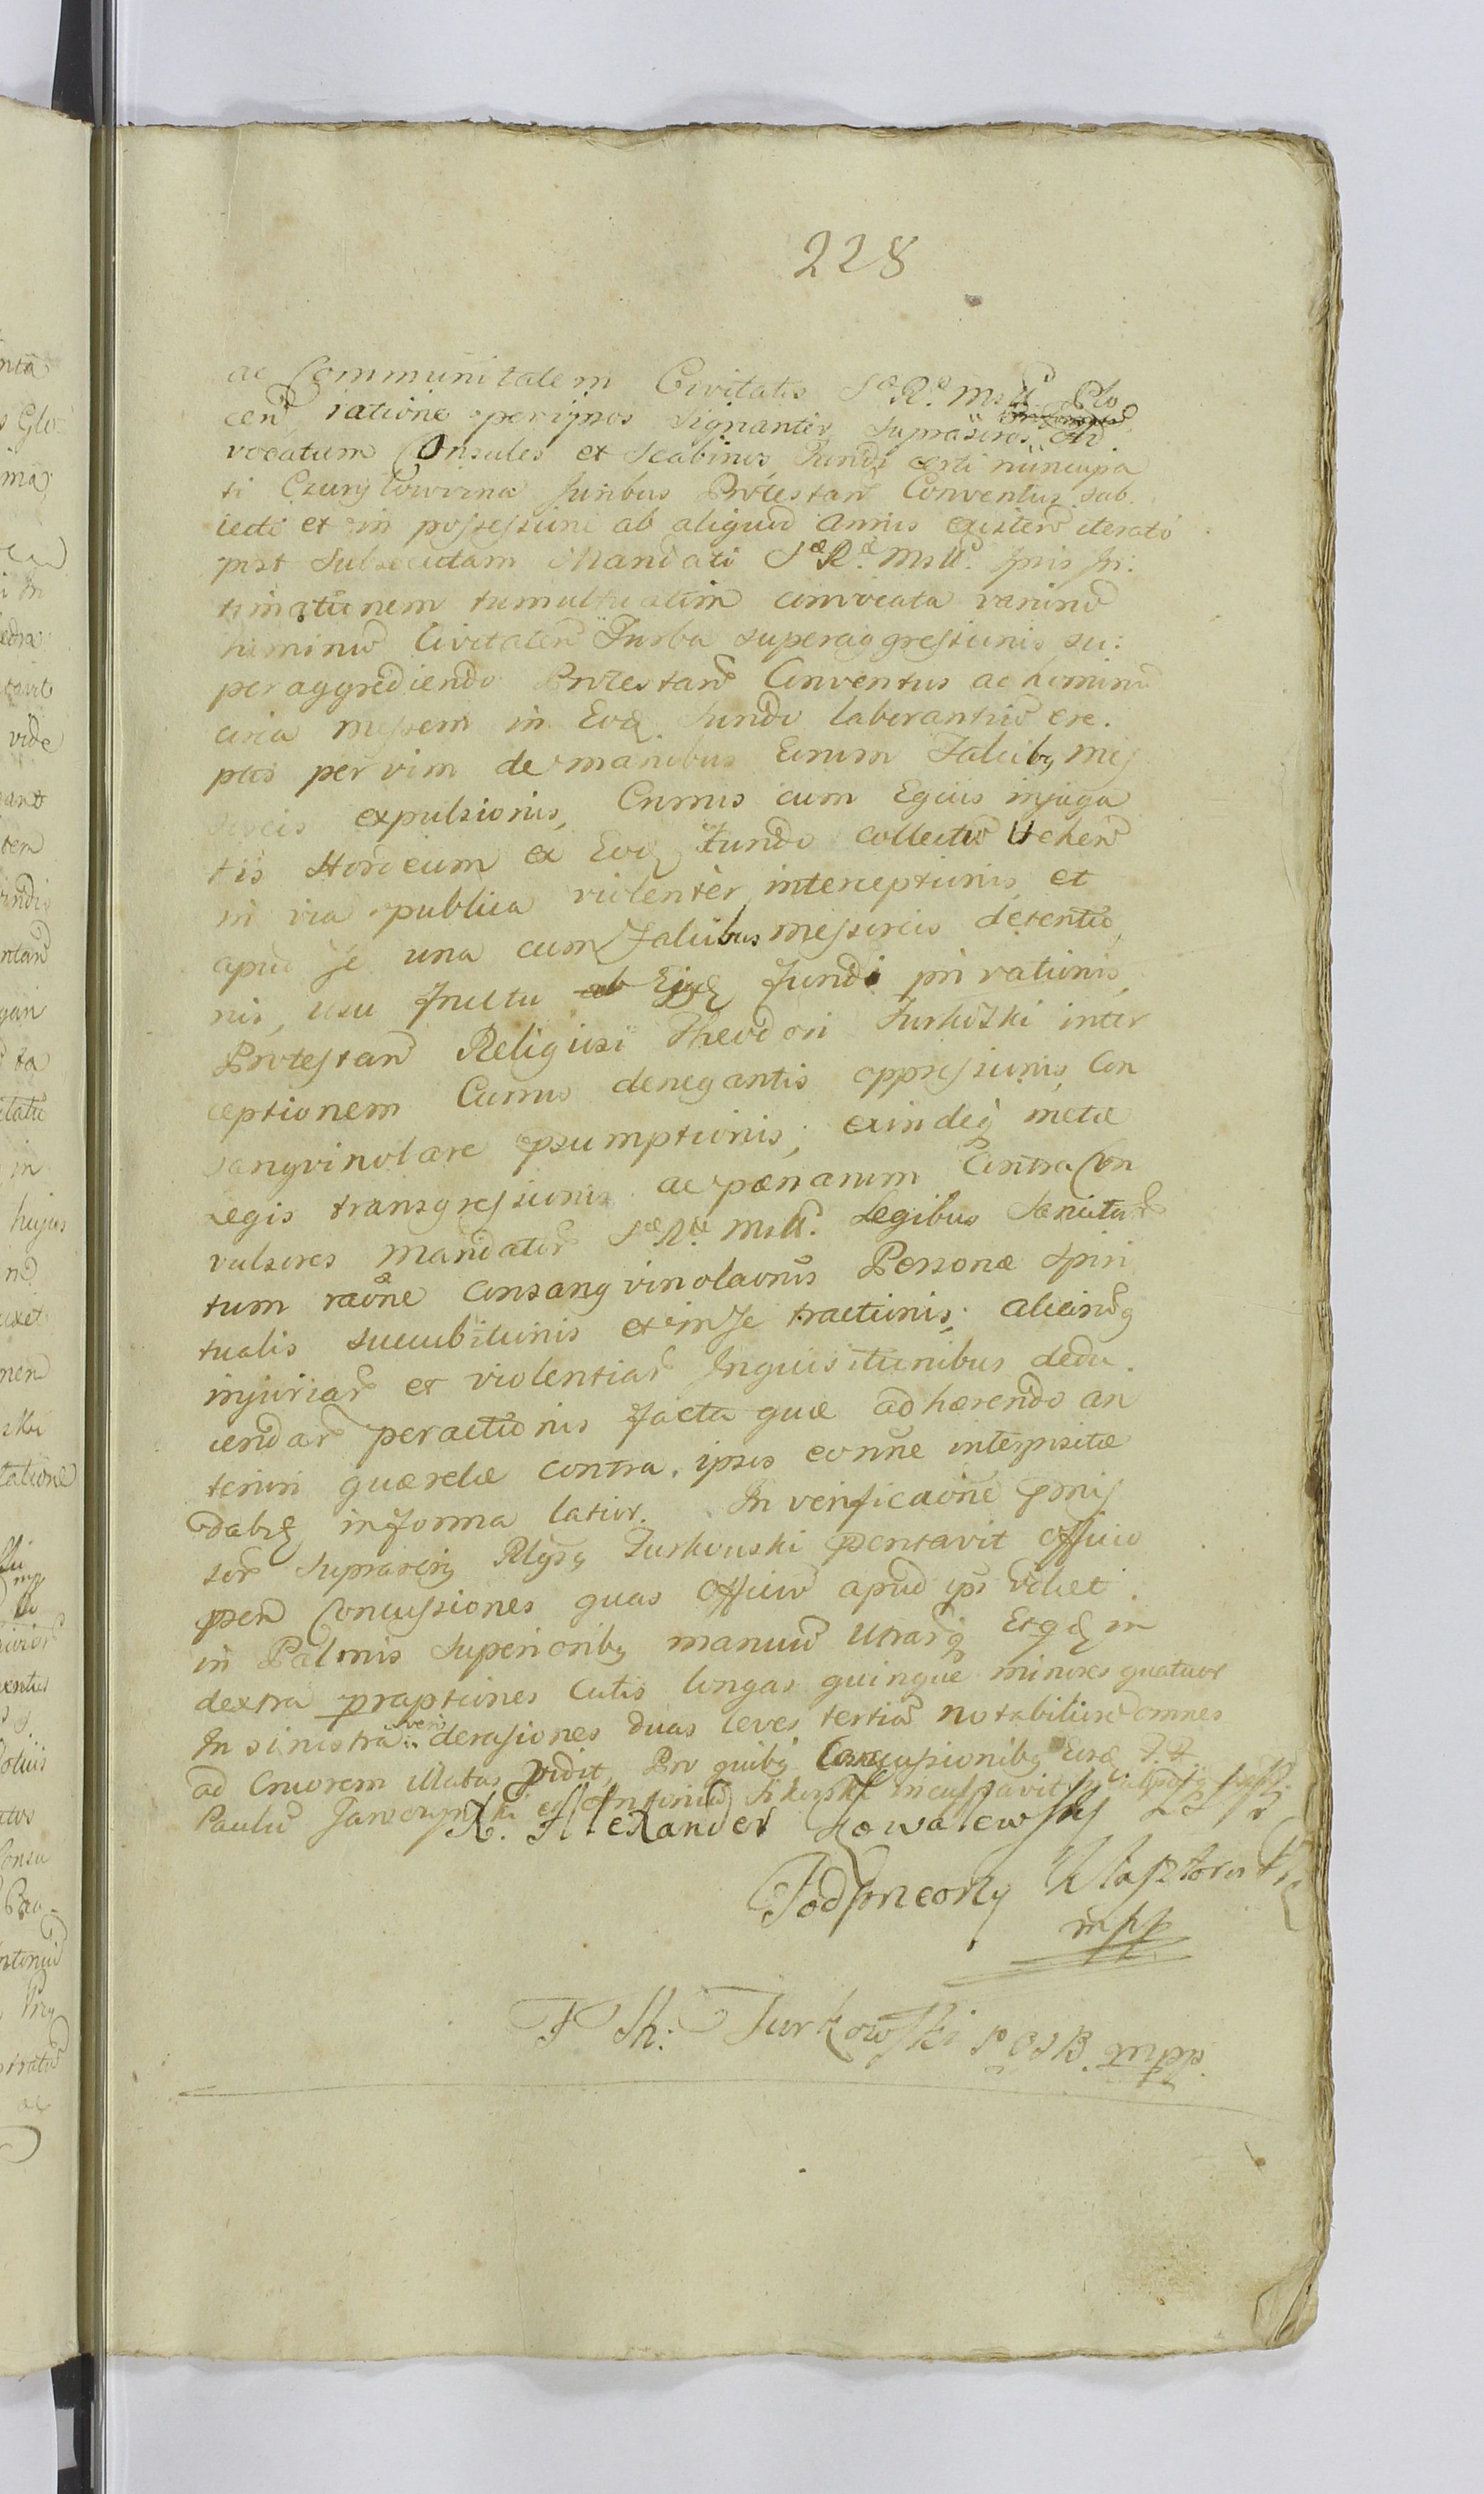 228
ac Communitatem Civitatis Sæ Ræ Mstt. Plo
cen̄ ratione per ipsos signanter supra Ad
vocatum Consules et Scabinos, Fundi certi nuncupa
ti juribus Protestan̄ Conventus sub
jecti et in possessione ab aliquod annis existen̄ iterato
post subsecutam Mandati Sæ Ræ Mstt. ipsis In:
timationem tumultuatim convocata varium
hominum Civitaten̄ Turba superaggressionis, su:
peraggrediendo Protestan̄ Conventus ac hominum
circa messem in Eoq Fundo laborantium ere.
ptis per vim de manibus Eorum Falcibq mes
soreis expulsionis, Currus cum Equis injuga
tis Hordeum ex Eoq Fundo collectum Vehen̄
in via publica violenter interceptionis et
apud se una cum Falcibus messoreis detentio
nis, usu fructu ab Ejq Fundi privationis,
Protestan̄ Religiosi Theodori Turkoski inter
ceptionem Currus denegantis oppressionis, Con
sangvinolare psumptionis, exindeq metæ
Legis transgressionis ac pænarum Contra Con
vulsores Mandator̄ Sæ Ræ Mstt. Legibus Sancitar̄
tum raōne consangvinolaōnis Personæ Spiri
tualis succubitionis et in se tractionis, aliarūq
injuriar̄ et violentiar̄ Inquisitionibus dedu.
cendar̄ peractionis facta quæ adhærendo an
teriori quærelæ contra ipsos eonne interpositæ
dabq in forma latior. In verificaōne pmis
sor̄ Religq Turkowski pentavit Officio
pen̄ Concussiones quas Officiū apud ipm
in Palmis Superioribq manuū Utrarq in
dextra praptiones Cutis longas quinque minores quatuor
In sinistra vero derasiones duas leves tertiā notabiliorē omnes
ad cruorem illatas vidit, Pro quibq Concussionibq
Paulū et Antoniū inculpavit
X. Alexander Kowalewsky
Podsoneony Klasztorn
mpp
F Th: Turkowski OSB. mpp.